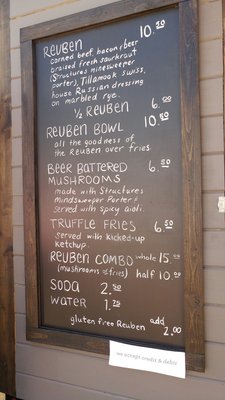 REUBEN 10.50
corned beef, bacon & beer
braised fresh saurkraut
(Structures minesweeper
porter), Tillamook swiss,
house Russian dressing
on marbled rye.
1/2 REUBEN 6.00
REUBEN BOWL 10.50
all the goodness of
the Reuben over fries.
BEER BATTERED 6.50
MUSHROOMS
made with Structures
mindsweeper Porter &
served with spicy aioli.
TRUFFLE FRIES 6.50
served with kicked-up
ketchup.
REUBEN COMBO whole 15.00
(mushrooms or fries) half 10.00
SODA 2.50
WATER 1.75
gluten free Reuben add
2.00
we accept credit & debit